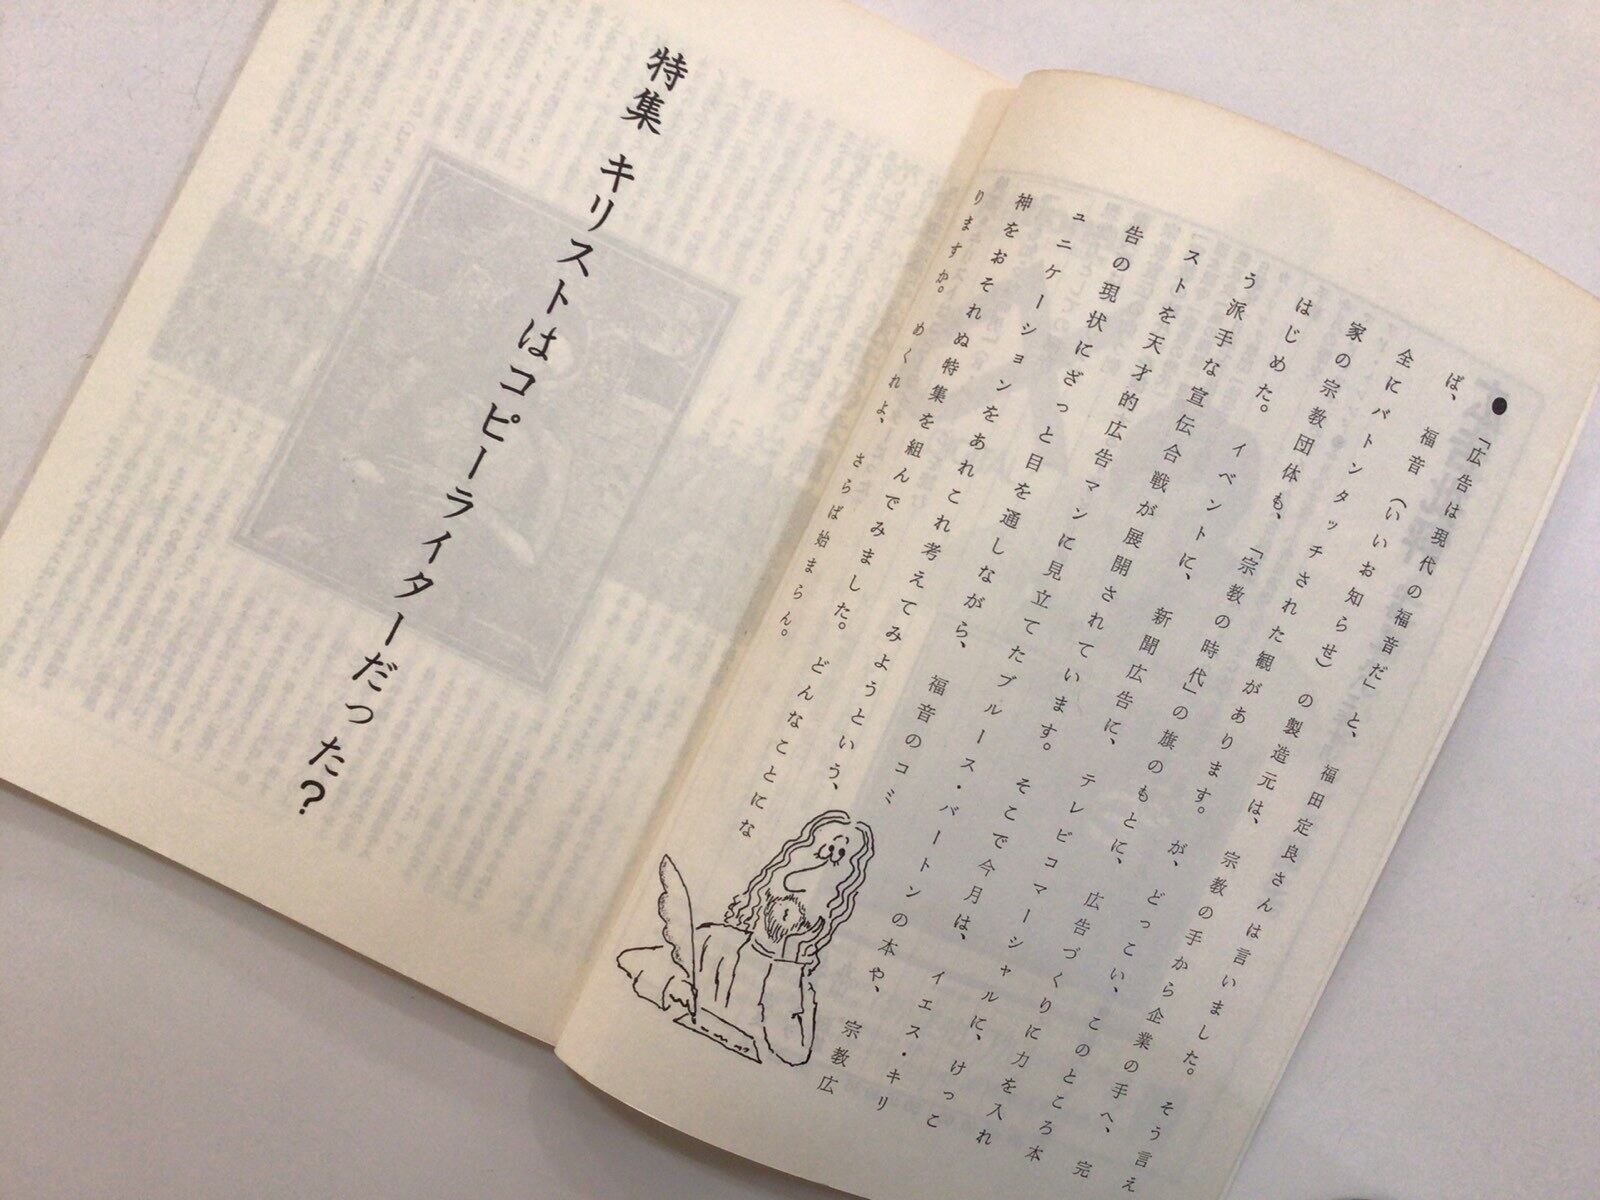 ●
「広告は現代の福音だ」と、福田定良さんは言いました。そう言え
ば、福音（いいお知らせ）の製造元は、宗教の手から企業の手へ、完
全にバトンタッチされた観があります。が、どっこい、このところ本
家の宗教団体も、「宗教の時代」の旗のもとに、広告づくりに力を入れ
はじめた。イベントに、新聞広告に、テレビコマーシャルに、けっこ
う派手な宣伝合戦が展開されています。そこで今月は、イエス・キリ
ストを天才的広告マンに見立てたブルース・バートンの本や、宗教広
告の現状にざっと目を通しながら、福音のコミ
ュニケーションをあれこれ考えてみようという、
神をおそれぬ特集を組んでみました。どんなことにな
りますか。めくれよ、さらば始まらん。
特集 キリストはコピーライターだった?